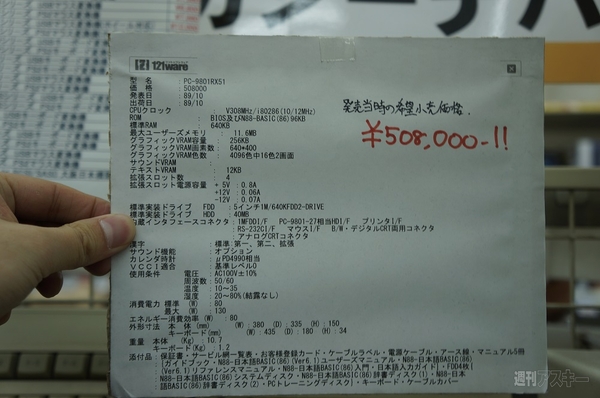 121ware
型 名 : PC-9801RX51
価 格 : 508000
発表日 : 89/10
出荷日 : 89/10
CPUクロック : V30 8MHz/i80286(10/12MHz)
ROM : BIOS及びN88-BASIC(86)96KB
標準RAM : 640KB
最大ユーザーズメモリ : 11.6MB
グラフィックVRAM容量 : 256KB
グラフィックVRAM画素数 : 640*400
グラフィックVRAM色数 : 4096色中16色2画面
サウンドVRAM
テキストVRAM : 12KB
拡張スロット数 : 4
拡張スロット電源容量 + 5V : 0.8A
+12V : 0.06A
-12V : 0.07A
標準実装ドライブ FDD : 5インチ1M/640KFDD2-DRIVE
標準実装ドライブ HDD : 40MB
内蔵インタフェースコネクタ : 1MFDDI/F PC-9801-27相当HDI/F プリンタI/F
RS-232CI/F マウスI/F B/W・デジタルCRT両用コネクタ
アナログCRTコネクタ
漢字 : 標準:第一、第二、拡張
サウンド機能 : オプション
カレンダ時計 : μPD4990相当
VCCI適合 : 基準レベル0
使用条件 電圧 : AC100V±10%
周波数 : 50/60
温度 : 10~35
湿度 : 20~80%(結露なし)
消費電力 標準 (W) : 80
最大 (W) : 130
エネルギー消費効率 (W) : 80
外形寸法 本 体 (mm) (W) : 380 (D) : 335 (H) : 150
キーボード(mm) (W) : 435 (D) : 180 (H) : 34
重量 本体 (Kg) : 10.7
キーボード (Kg) : 1.2
添付品 : 保証書・サービス網一覧表・お客様登録カード・ケーブルラベル・電源ケーブル・アース線・マニュアル5冊
(ガイドブック・N88-日本語BASIC(86)(Ver6.1)ユーザーズマニュアル・N88-日本語BASIC(86)
(Ver6.1)リファレンスマニュアル・N88-日本語BASIC(86)入門・日本語入力ガイド)・FDD4枚(
N88-日本語BASIC(86)システムディスク・N88-日本語BASIC(86)辞書ディスク(1)・N88-日本
語BASIC(86)辞書ディスク(2)・PCトレーニングディスク)・キーボード・ケーブルカバー
発売当時の希望小売価格、
¥508,000-!!
週刊アスキー